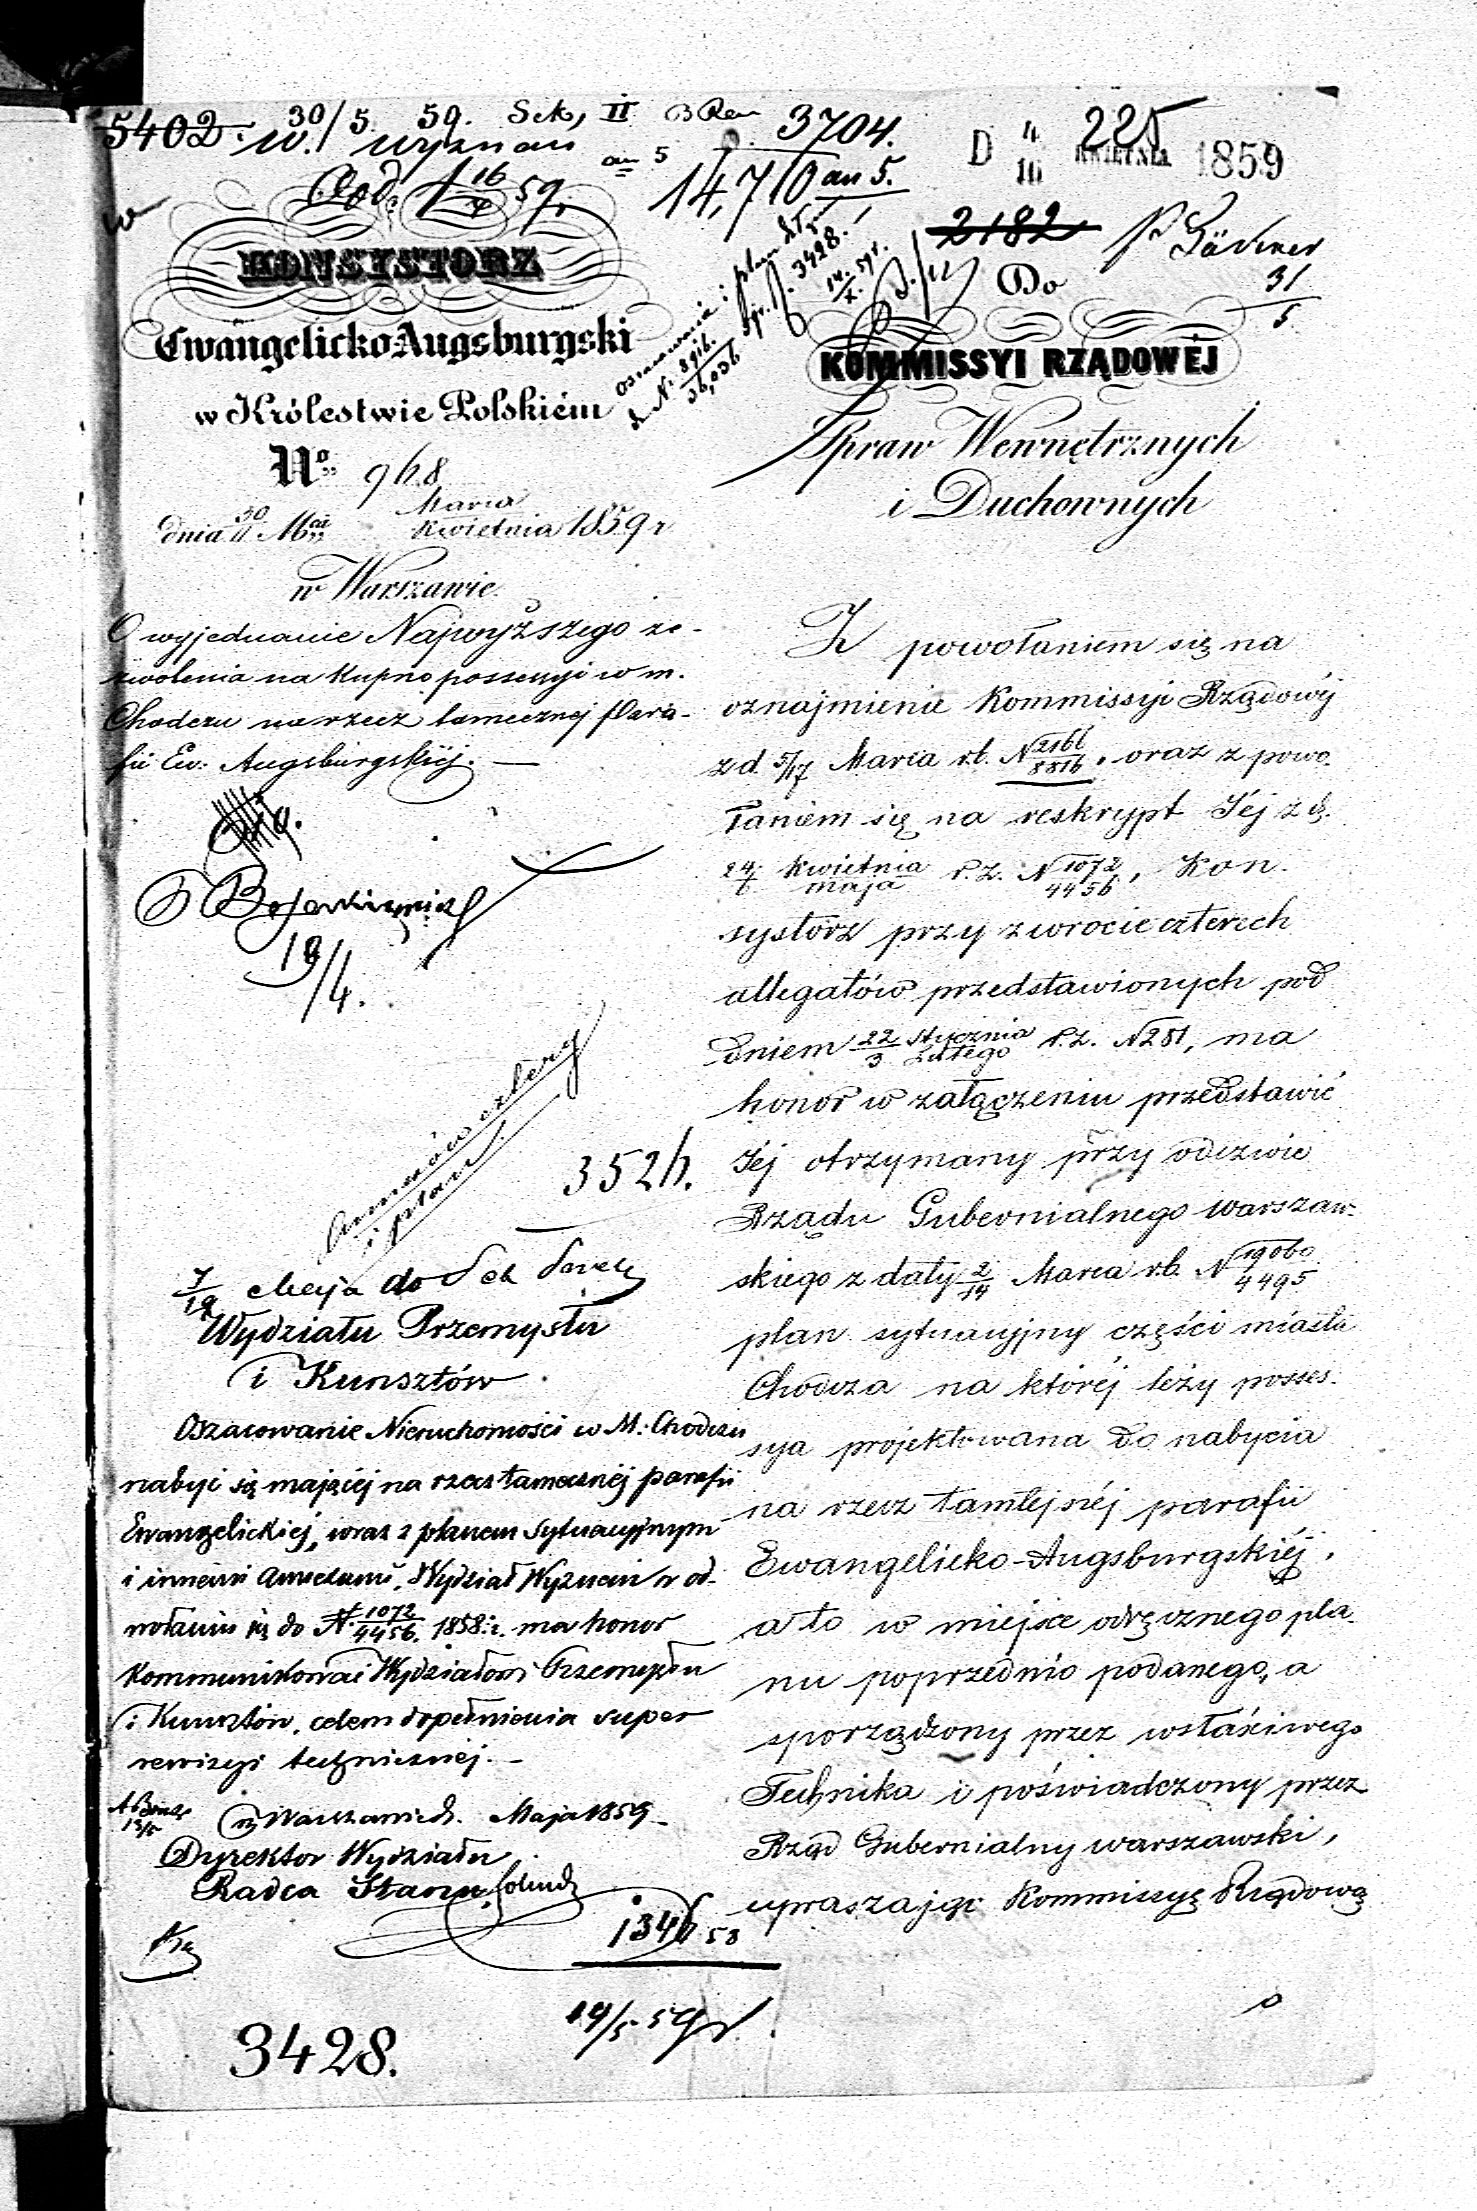 5402. 30/5 59. Sek, II
w. wyznań
3704.
14,710 an 5.
D 4/16 KWIETNIA 1859
225
2182
31/5
KONSYSTORZ
Ewangelicko-Augsburgski
w Królestwie Polskiém
No 968
dnia 30/11 Marca/Kwietnia 1859 r
w Warszawie.
O wyjednanie Najwyższego ze-
zwolenia na kupno possessyi w m.
Chodczu na rzecz tamecznej Para-
fii Ew: Augsburgskiéj. —
18/4.
Annexów cztery
i plan
352h.
7/19 Maja do
Wydziału Przemysłu
i Kunsztów
Oszacowanie Nieruchomości w M. Chodczu
nabyć się mającéj na rzecz tamecznéj parafii
Ewangelickiéj, wraz z planem sytuacyjnym
i innemi annexami, Wydział Wyznań w od-
wołaniu się do N 1072/4456. 1858 r. ma honor
kommunikować Wydziałowi Przemysłu
i Kunsztów, celem dopełnienia super
rewizyi technicznéj. —
w Warszawie d. Maja 1859
Dyrektor Wydziału
Radca Stanu
1346 58
19/5 59
3428.
Do
KOMMISSYI RZĄDOWÉJ
Spraw Wewnętrznych
i Duchownych
Z powołaniem się na
oznajmienie Kommissyi Rządowéj
z d. 5/17 Marca r.b. N 2166/8516, oraz z powo-
łaniem się na reskrypt Jéj z d.
24/6 Kwietnia/maja r.z. N 1072/4456, Kon-
systorz przy zwrocie czterech
allegatów przedstawionych pod
dniem 22/3 Stycznia/Lutego r.z. N 281, ma
honor w załączeniu przedstawić
Jéj otrzymany przy odezwie
Rządu Gubernialnego Warszaw-
skiego z daty 2/14 Marca r.b. N 19060/4495
plan sytuacyjny części miasta
Chodcza na któréj leży posses-
sya projektowana do nabycia
na rzecz tamtejszéj parafii
Ewangelicko-Augsburgskiéj,
a to w miejsce odręcznego pla-
nu poprzednio podanego, a
sporządzony przez właściwego
Technika i poświadczony przez
Rząd Gubernialny Warszawski,
upraszając Kommissyę Rządową